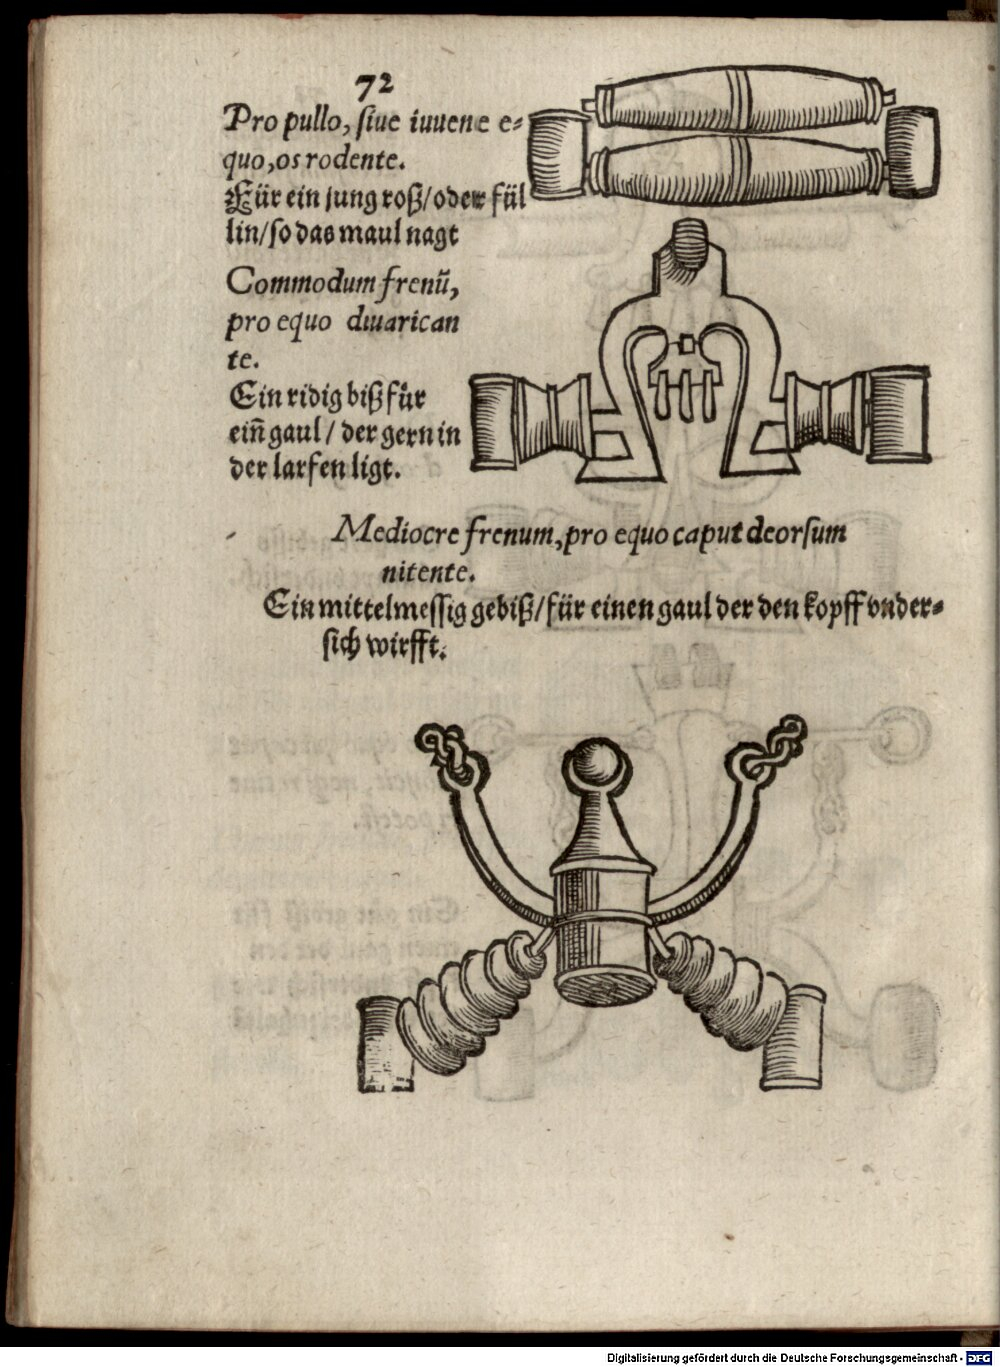 72
Pro pullo, siue iuuene e-
quo, os rodente.
Für ein jung roß/oder fül
lin/so das maul nagt
Commodum frenũ,
pro equo diuarican
te.
Ein ridig biß für
eiñ gaul/ der gern in
der larfen ligt.
Mediocre frenum, pro equo caput deorsum
nitente.
Ein mittelmessig gebiß/für einen gaul der den kopff vnder-
sich wirfft.
Digitalisierung gefördert durch die Deutsche Forschungsgemeinschaft - DFG